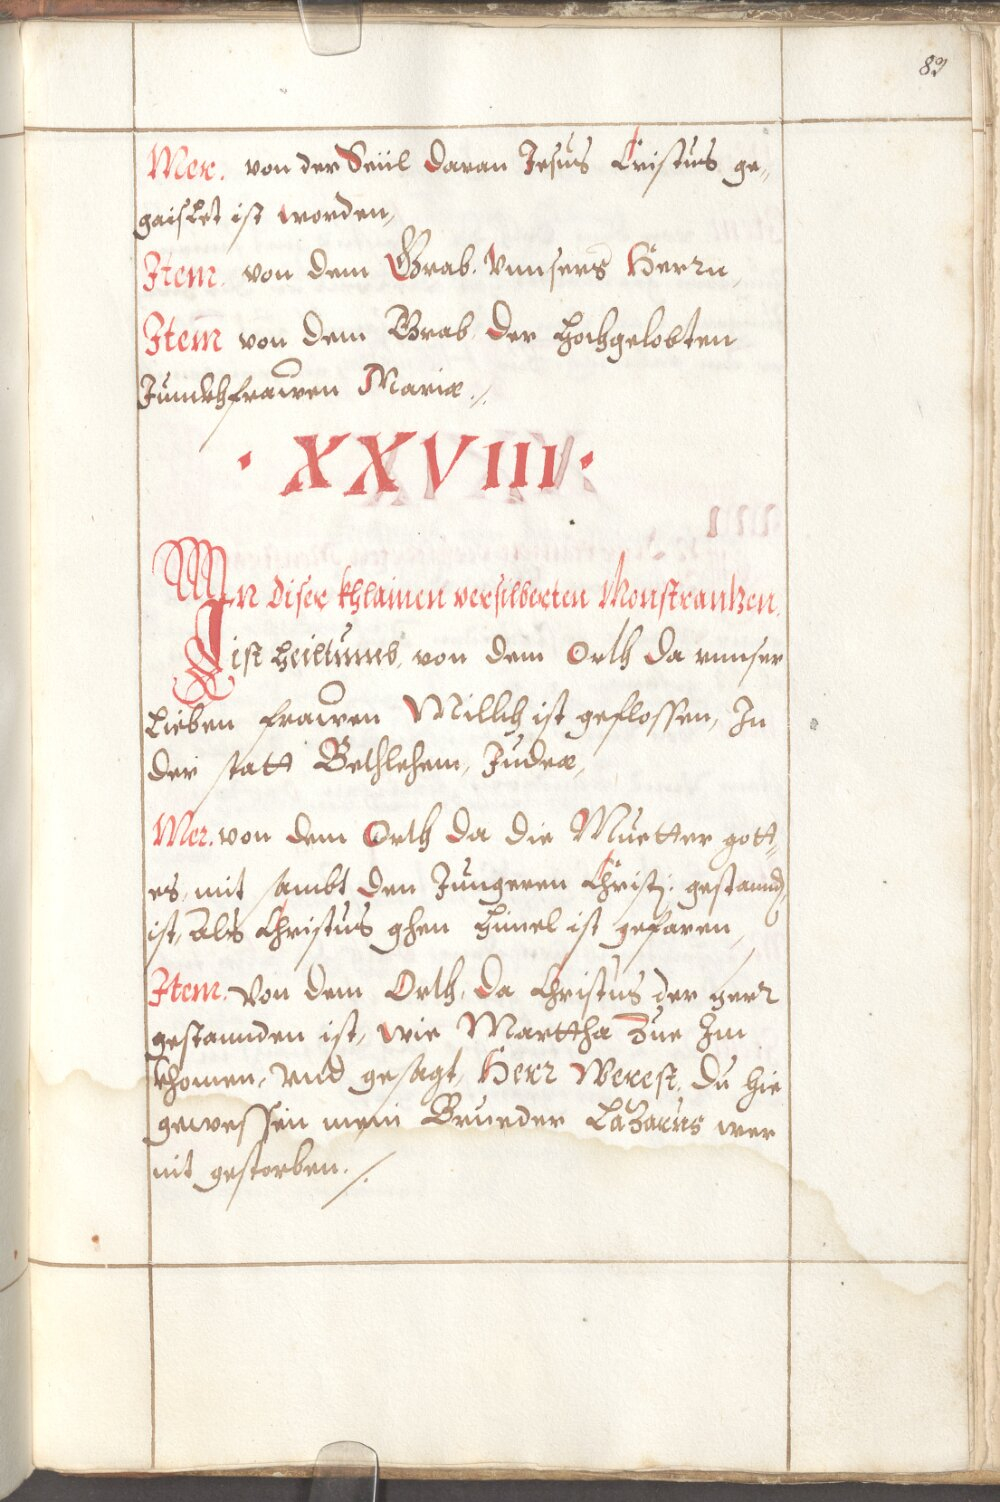 83
Mer. von der Seül daran Jesus Cristus ge„
gaislet ist worden,
Item. von dem Grab. Vnnsers Herrn,
Item von dem Grab der Hochgelobten
Junckhfrawen Mariæ ./.
· XXVIII ·
In diser khlainen versilberten Monstrantzen.
ist heiltumb, von dem Orth da vnnser
Lieben frawen Millich ist geflossen, In
der statt Bethlehem, Judeæ,
Mer. von dem Orth da die Muetter gott„
es, mit sambt den Jungeren Christj. gestannd,
ist, Als Christus ghen himel ist gefaren,
Item. Von dem Orth, da Christus der herr
gestannden ist, wie Marttha Zue Im
khomen, vnd gesagt, Herr Werest du hie
gewessen mein Brueder Lazarus wer
nit gestorben. ./.